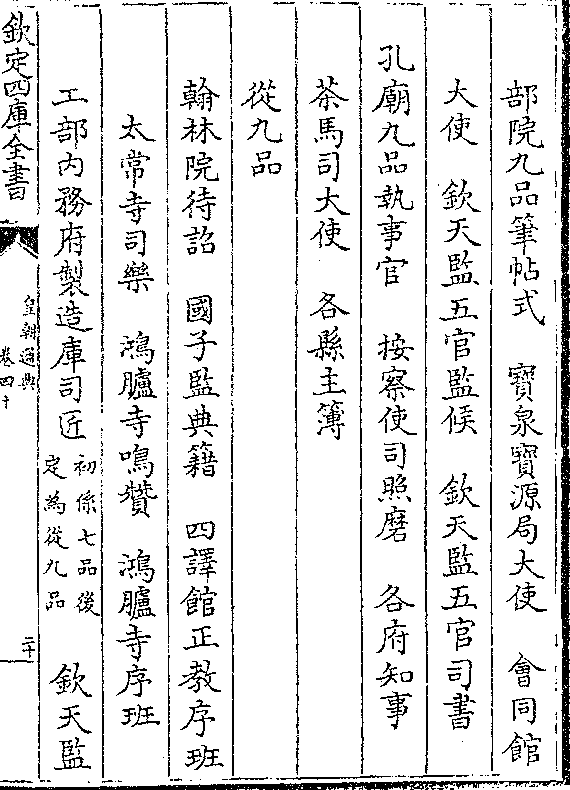 部院九品筆帖式　寶泉寶源局大使　會同館
大使　欽天監五官監候　欽天監五官司書
孔廟九品執事官　按察使司照磨　各府知事
茶馬司大使　各縣主簿
從九品
翰林院待詔　國子監典籍　四譯館正教序班
太常寺司樂　鴻臚寺鳴贊　鴻臚寺序班
工部内務府製造庫司匠初係七品後定為從九品　欽天監
欽定四庫全書
皇朝通典
卷四十
二十